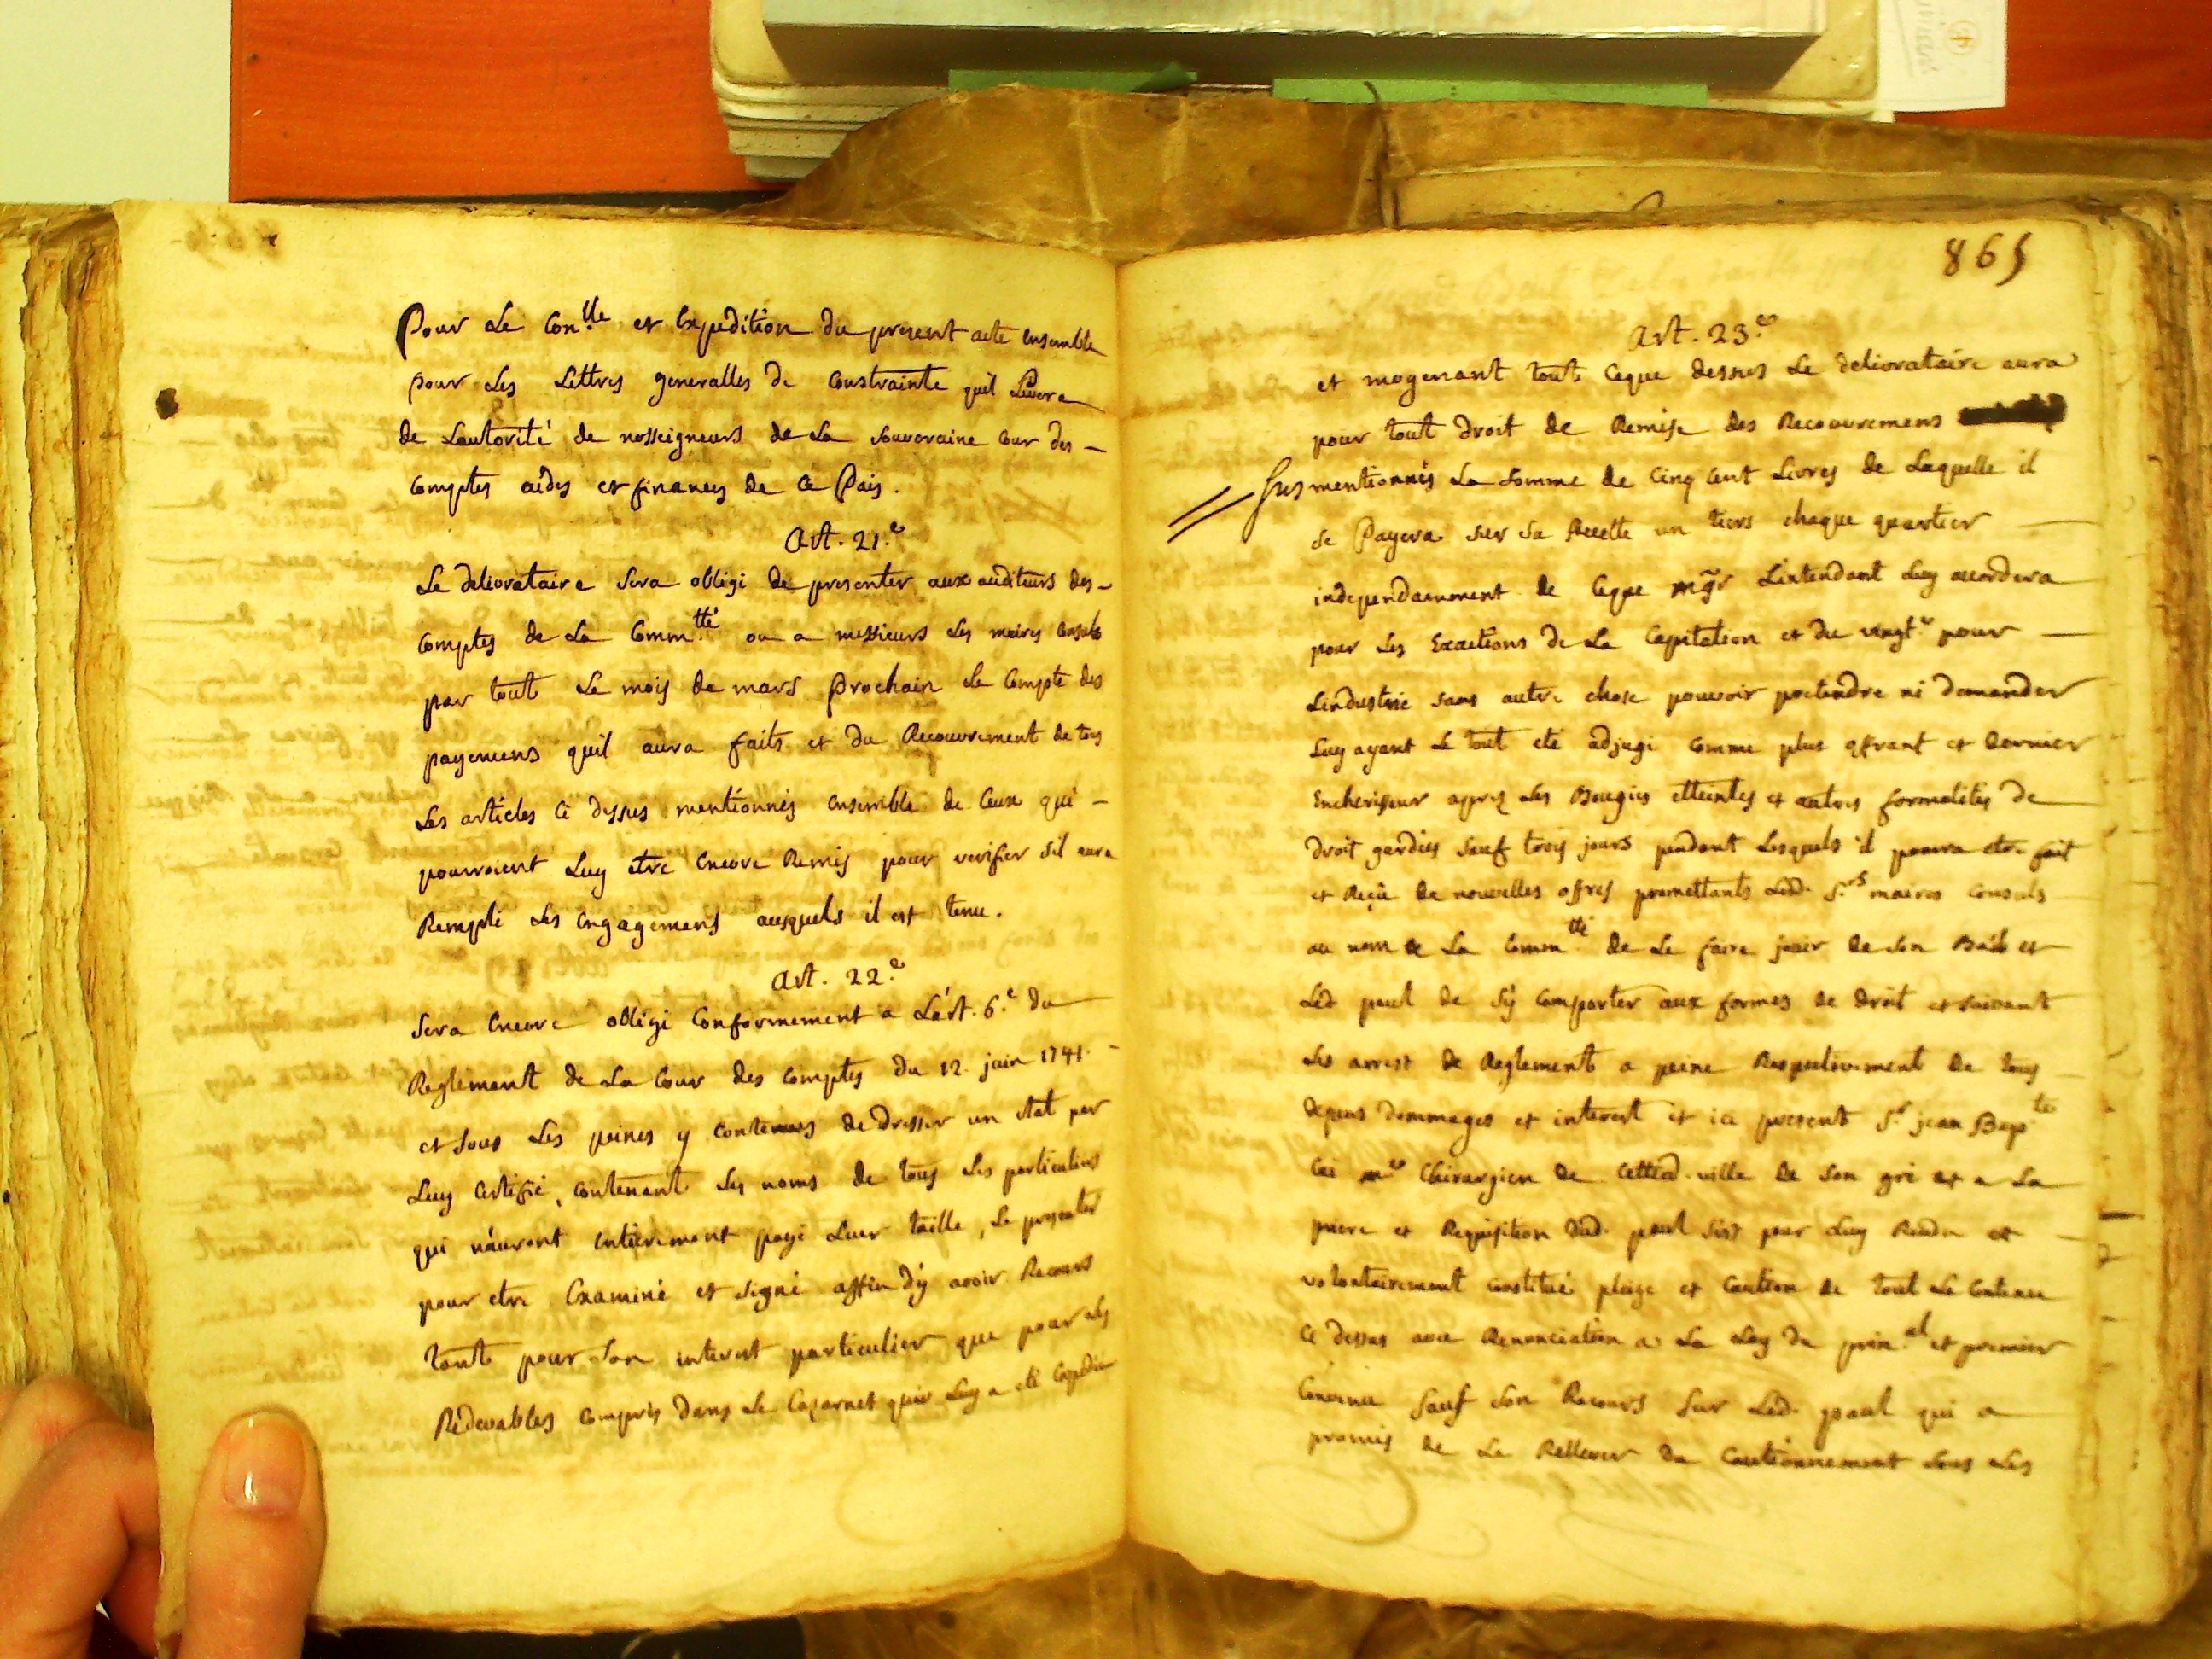 Pour Le Con.lle et Expedition du present acte ensemble
pour Les Lettres generalles de Constrainte quil Levera
de Lautorité de nosseigneurs de La Souveraine Cour des
Comptes aides et finances de Ce Pais.
Art. 21.e
Le delivrataire Sera obligé de presenter aux auditeurs des
Comptes de La Comm.tté ou a messieurs Les maires Consuls
par tout Le mois de mars Prochain Le Compte des
payemens quil aura faits et du Recouvrement de tous
Les articles Ci dessus mentionnés ensemble de Ceux qui
pourroient Luy etre Encore Remis pour verifier sil aura
Rempli Les Engagemens ausquels il est tenu.
Art. 22.e
Sera Encore obligé Conformement a L'art. 6.e du
Reglement de La Cour des Comptes du 12. juin 1741.
et Sous Les peines y Contenues de dresser un Etat par
Luy Certifié, Contenant Les noms de tous Les particuliers
qui n'auront entierement payé Leur taille, Le presenter
pour etre Examiné et Signé affin d'y avoir Recours
tant pour Son interest particulier que pour Les
Redevables Compris dans Le Cazarnet quir Luy a eté Expedié
865
Art. 23.e
et moyenant tout Ceque dessus Le delivrataire aura
pour tout droit de Remise des Recouvremens
Sus mentionnés La Somme de Cinq Cent Livres de Laquelle il
Se Payera Sur Sa Recette un tiers chaque quartier
independamment de Ceque mgr Lintendant Luy accordera
pour Les Exactions de La Capitation et du vingt.e pour
Lindustrie Sans autre chose pouvoir pretendre ni demander
Luy ayant Le tout eté adjugé Comme plus offrant et dernier
Encherisseur aprez Les Bougies etteintes et autres formalités de
droit gardées Sauf trois jours pendant Lesquels il pourra etre fait
et Reçu de nouvelles offres promettants Lesd. S.rs maires Consuls
au nom de La Comm.tté de Le faire jouir de Son Bail et
Led paul de S'y Comporter aux formes de droit et Suivant
Les arrest de Reglement a peine Respectivement de tous
depens dommages et interest et ici present S.r jean Bap.te
m.e Chirurgien de Cetted. ville de Son gré et a La
priere et Requisition dud. paul S'est pour Luy Rendu et
volontairement Constitué pleige et Caution de tout Le Contenu
Ci dessus avec Renonciation a La Loy du prin.al et premier
Convenu Sauf Son Recours Sur Led. paul qui a
promis de Le Relever du Cautionnement Sous Les